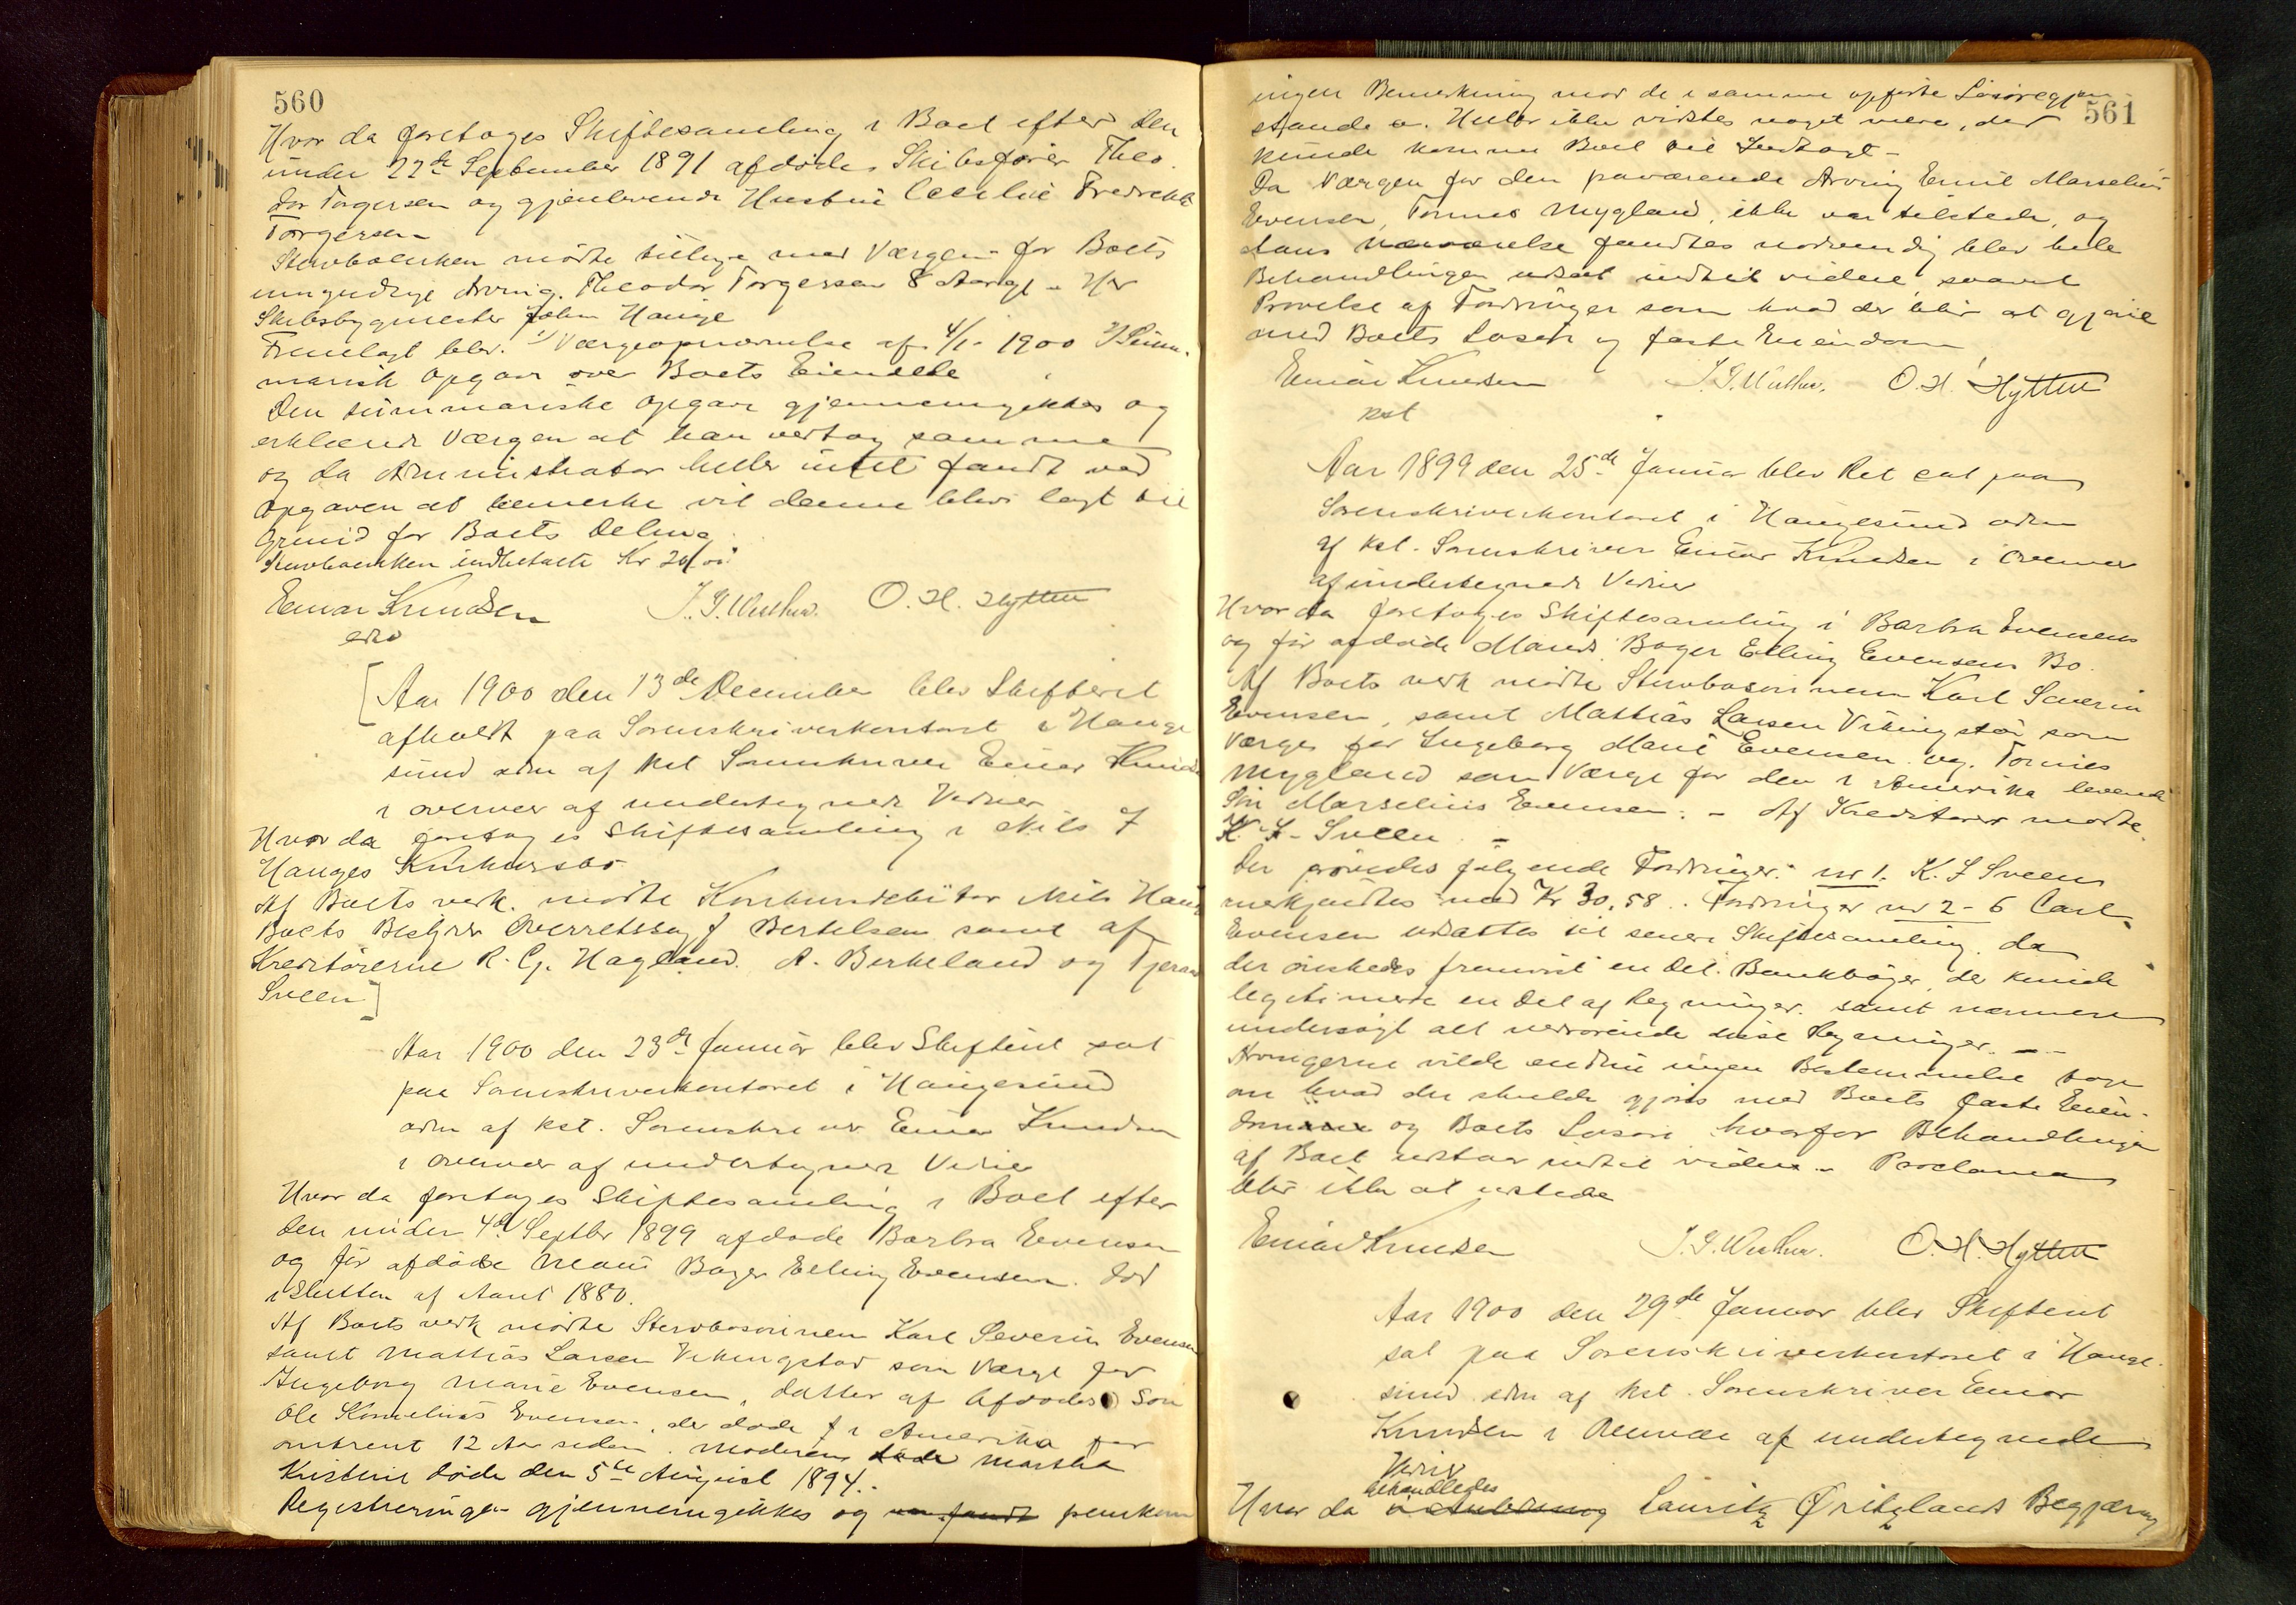 560
Hvor da foretoges Skiftesamling i Boet efter den
under 22de September 1891 afdøde Skibsfører Theo-
dor Torgersen og gjenlevende Hustru Cecilie Fredrikke
Torgersen
Stervboenken mødte tillige med Værgen for Boets
umyndige Arving, Theodor Torgersen 8 Aar gl - Hr
Skibsbygmester John Hauge
Fremlagt blev. 1) Værgeopnævnelse af 4/1- 1900 2) Sum-
marisk Opgave over Boets Eiendele
Den summariske Opgave gjennemgikkes og
erklærede Værgen at han vedtog samme
og da Administrator heller intet fandt ved
Opgaven at bemerke vil denne blive lagt til
Grund for Boets Deling
Stervboenken indbetalte Kr 20,00
Einar Knudsen J. G. Wester. O. H. Hytten
edo
[Aar 1900 den 13de December blev Skifteret
afholdt paa Sorenskriverkontoret i Hauge
sund adm af kst Sorenskriver Einar Knuds
i overvær af undertegnede Vidner
Hvor da foretoges Skiftesamling i Nils J
Hauges Konkursbo
Af Boets vedk. mødte Konkursdebitor Nils Haug
Boets Bestyrer Overretssagf Bertelsen samt af
Kreditorerne R. G. Hagland. A. Berkeland og Tjeran
Sveen]
Aar 1900 den 23de Januar blev Skifteret sat
paa Sorenskriverkontoret i Haugesund
adm af kst. Sorenskriver Einar Knudsen
i overvær af undertegnede Vidner
Hvor da foretoges Skiftesamling i Boet efter
den under 4de Septbr 1899 afdøde Barbra Evensen
og før afdøde Mand Bager Elling Evensen. død
i Slutten af Aaret 1880.
Af Boets vedk mødte Stervbosønnen Karl Severin Evensen
samt Mathias Larsen Vikingstad som Værge for
Ingeborg Marie Evensen, datter af Afdødes Søn
Ole Kornelius Evensen, der døde i Amerika for
omtrent 12 Aar siden. Moderen døde Martha
Kristine døde den 5te August 1894.
Registreringen gjennemgikkes og fandt
561
ingen Bemerkning mod de i samme opførte Løsøregjen-
stande a. Heller ikke vidstes noget mere, der
kunde komme Boet til Indtægt -
Da Værgen for den fraværende Arving Emil Marselius
Evensen, Tønnes Mygland, ikke var tilstede, og
hans Nærværelse fandtes nødvendig blev hele
Behandlingen udsat indtil videre, saavel
Prøvelse af Fordringer som hvad der blir at gjøre
med Boets Løsøre og faste Eiendom
Einar Knudsen J. G. Wester. O. H. Hytten
kst
Aar 1899 den 25de Januar blev Ret sat paa
Sorenskriverkontoret i Haugesund adm
af kst. Sorenskriver Einar Knudsen i overvær
af undertegnede Vidner
Hvor da foretoges Skiftesamling i Barbra Evensens
og før afdøde Mands Bager Elling Evensens Bo.
Af Boets vedk mødte Stervbosønnen Karl Severin
Evensen, samt Mathias Larsen Vikingstad som
Værge for Ingeborg Marie Evensen. og Tønnes
Mygland som Værge for den i Amerika levende
Søn Marselius Evensen. - Af Kreditorer mødte
K. J. Sveen. -
Der prøvedes følgende Fordringer: nr 1. K. J Sveen
anerkjendtes med Kr 30,58. Fordringer nr 2-6 Carl
Evensen udsattes til senere Skiftesamling, da
der ønskedes fremvist en Del. Bankbøger, der kunde
legitimere en Del af Regninger samt nærmere
undersøgt alt vedrørende disse Regninger. - -
Arvingerne vilde endnu ingen Bestemmelse tage
om hvad der skulde gjøres med Boets faste Eien-
dom og Boets Løsøre, hvorfor Behandlingen
af Boet udstaar indtil videre. - Proclama
blir ikke at udstede
Einar Knudsen J. G. Wester. O. H. Hytten
Aar 1900 den 29de Januar blev Skifteret
sat paa Sorenskriverkontoret i Hauge-
sund adm af kst. Sorenskriver Einar
Knudsen i Overvær af undertegnede
Vidner
behandledes
Hvor da i Anledning Lauritz Øritslands Begjæring